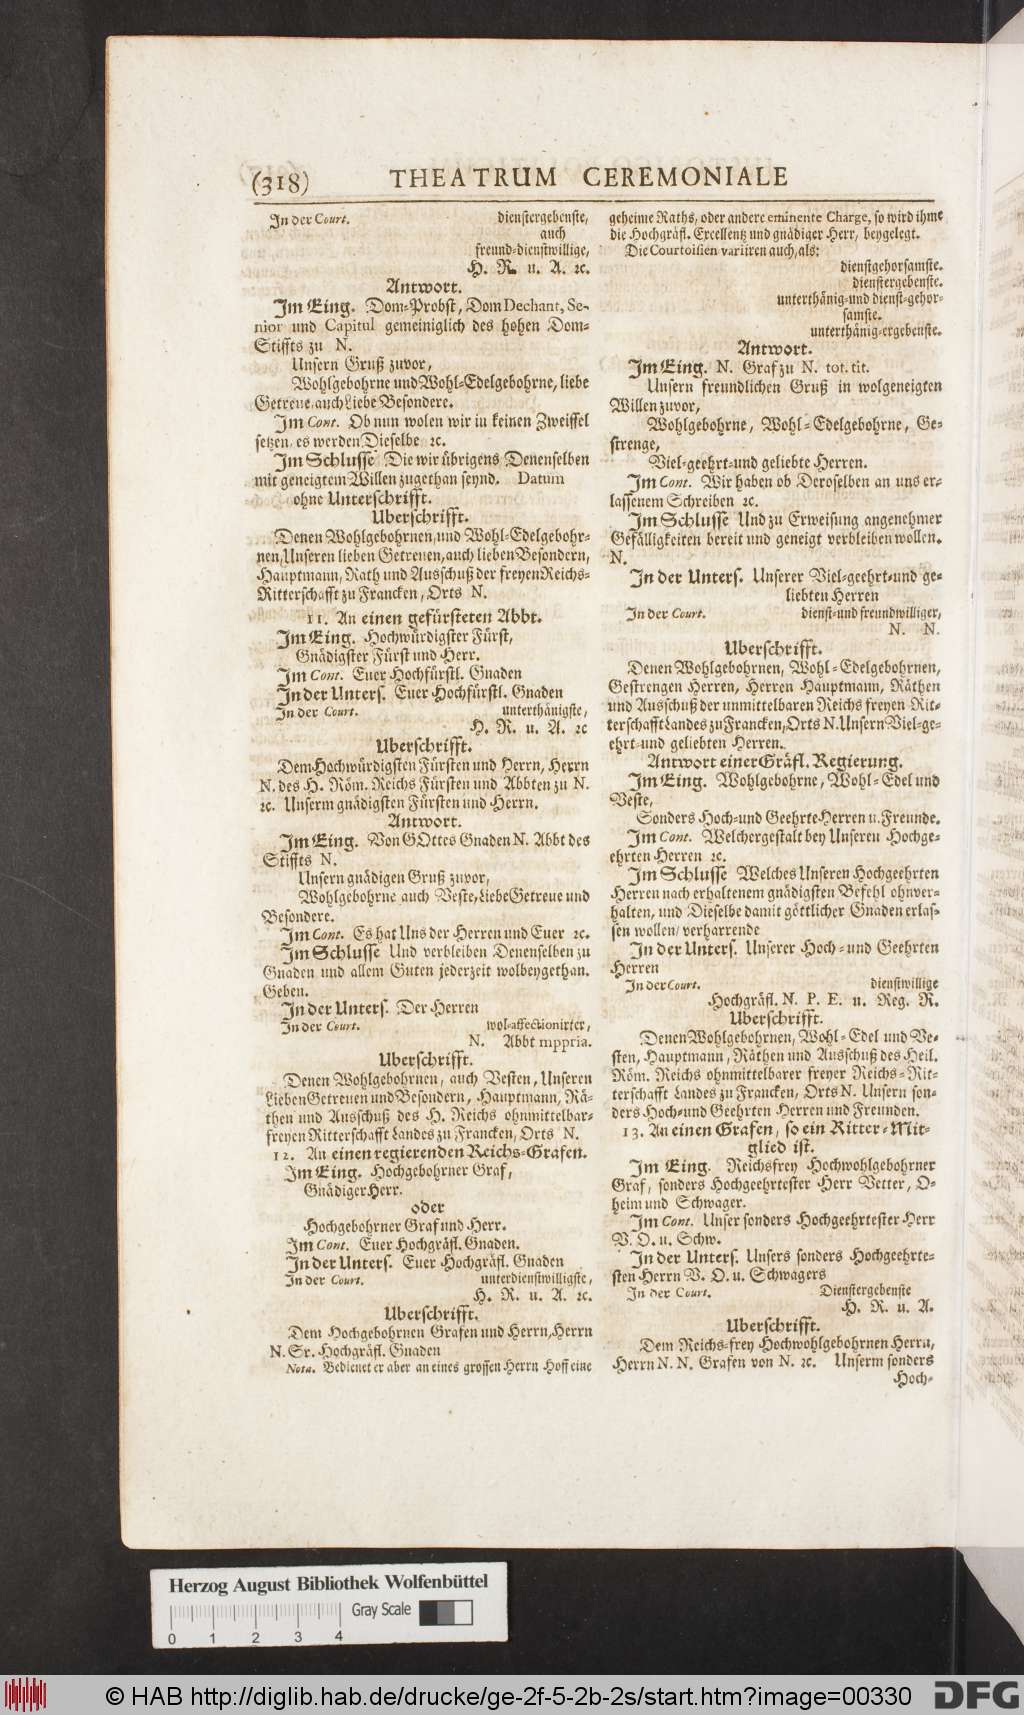 (318) THEATRUM CEREMONIALE
In der Court. dienstergebenste,
auch
freund-dienstwillige,
H. R. u. A. ꝛc.
Antwort.
Im Eing. Dom-Probst, Dom Dechant, Se-
nior und Capitul gemeiniglich des hohen Dom-
Stiffts zu N.
Unsern Gruß zuvor,
Wohlgebohrne und Wohl-Edelgebohrne, liebe
Getreue, auch Liebe Besondere.
Im Cont. Ob nun wolen wir in keinen Zweiffel
setzen, es werden Dieselbe ꝛc.
Im Schlusse Die wir übrigens Denenselben
mit geneigtem Willen zugethan seynd. Datum
ohne Unterschrifft.
Uberschrifft.
Denen Wohlgebohrnen, und Wohl-Edelgebohr-
nen, Unseren lieben Getreuen, auch lieben Besondern,
Hauptmann, Rath und Ausschuß der freyen Reichs-
Ritterschafft zu Francken, Orts N.
11. An einen gefürsteten Abbt.
Im Eing. Hochwürdigster Fürst,
Gnädigster Fürst und Herr.
Im Cont. Euer Hochfürstl. Gnaden
In der Unters. Euer Hochfürstl. Gnaden
In der Court. unterthänigste,
H. R. u. A. ꝛc
Uberschrifft.
Dem Hochwürdigsten Fürsten und Herrn, Herrn
N. des H. Röm. Reichs Fürsten und Abbten zu N.
ꝛc. Unserm gnädigsten Fürsten und Herrn.
Antwort.
Im Eing. Von GOttes Gnaden N. Abbt des
Stiffts N.
Unsern gnädigen Gruß zuvor,
Wohlgebohrne auch Veste, Liebe Getreue und
Besondere.
Im Cont. Es hat Uns der Herren und Euer ꝛc.
Im Schlusse Und verbleiben Denenselben zu
Gnaden und allem Guten jederzeit wolbeygethan.
Geben.
In der Unters. Der Herren
In der Court. wol-affectionirter,
N. Abbt mppria.
Uberschrifft.
Denen Wohlgebohrnen, auch Vesten, Unseren
Lieben Getreuen und Besondern, Hauptmann, Rä-
then und Ausschuß des H. Reichs ohnmittelbar-
freyen Ritterschafft Landes zu Francken, Orts N.
12. An einen regierenden Reichs-Grafen.
Im Eing. Hochgebohrner Graf,
Gnädiger Herr.
oder
Hochgebohrner Graf und Herr.
Im Cont. Euer Hochgräfl. Gnaden.
In der Unters. Euer Hochgräfl. Gnaden
In der Court. unterdienstwilligste,
H. R. u. A. ꝛc.
Uberschrifft.
Dem Hochgebohrnen Grafen und Herrn, Herrn
N. Sr. Hochgräfl. Gnaden
Nota. Bedienet er aber an eines grossen Herrn Hoff eine
geheime Raths, oder andere eminente Charge, so wird ihme
die Hochgräfl. Excellentz und gnädiger Herr, beygelegt.
Die Courtoisien variiren auch, als:
dienstgehorsamste.
dienstergebenste.
unterthänig-und dienst-gehor-
samste.
unterthänig-ergebenste.
Antwort.
Im Eing. N. Graf zu N. tot. tit.
Unsern freundlichen Gruß in wolgeneigten
Willen zuvor,
Wohlgebohrne, Wohl-Edelgebohrne, Ge-
strenge,
Viel-geehrt-und geliebte Herren.
Im Cont. Wir haben ob Deroselben an uns er-
lassenem Schreiben ꝛc.
Im Schlusse Und zu Erweisung angenehmer
Gefälligkeiten bereit und geneigt verbleiben wollen.
N.
In der Unters. Unserer Viel-geehrt-und ge-
liebten Herren
In der Court. dienst-und freundwilliger,
N. N.
Uberschrifft.
Denen Wohlgebohrnen, Wohl-Edelgebohrnen,
Gestrengen Herren, Herren Hauptmann, Räthen
und Ausschuß der unmittelbaren Reichs freyen Rit-
terschafft Landes zu Francken, Orts N. Unsern Viel-ge-
ehrt-und geliebten Herren.
Antwort einer Gräfl. Regierung.
Im Eing. Wohlgebohrne, Wohl-Edel und
Veste,
Sonders Hoch-und Geehrte Herren u. Freunde.
Im Cont. Welchergestalt bey Unseren Hochge-
ehrten Herren ꝛc.
Im Schlusse Welches Unseren Hochgeehrten
Herren nach erhaltenem gnädigsten Befehl ohnver-
halten, und Dieselbe damit göttlicher Gnaden erlas-
sen wollen, verharrende
In der Unters. Unserer Hoch-und Geehrten
Herren
In der Court. dienstwillige
Hochgräfl. N. P. E. u. Reg. R.
Uberschrifft.
Denen Wohlgebohrnen, Wohl-Edel und Ve-
sten, Hauptmann, Räthen und Ausschuß des Heil.
Röm. Reichs ohnmittelbarer freyer Reichs-Rit-
terschafft Landes zu Francken, Orts N. Unsern son-
ders Hoch-und Geehrten Herren und Freunden.
13. An einen Grafen, so ein Ritter-Mit-
glied ist.
Im Eing. Reichsfrey Hochwohlgebohrner
Graf, sonders Hochgeehrtester Herr Vetter, O-
heim und Schwager.
Im Cont. Unser sonders Hochgeehrtester Herr
V. O. u. Schw.
In der Unters. Unsers sonders Hochgeehrte-
sten Herrn V. O. u. Schwagers
In der Court. Dienstergebenste
H. R. u. A.
Uberschrifft.
Dem Reichs-frey Hochwohlgebohrnen Herrn,
Herrn N. N. Grafen von N. ꝛc. Unserm sonders
Hoch-
Herzog August Bibliothek Wolfenbüttel
Gray Scale
0 1 2 3 4
© HAB http://diglib.hab.de/drucke/ge-2f-5-2b-2s/start.htm?image=00330
DFG